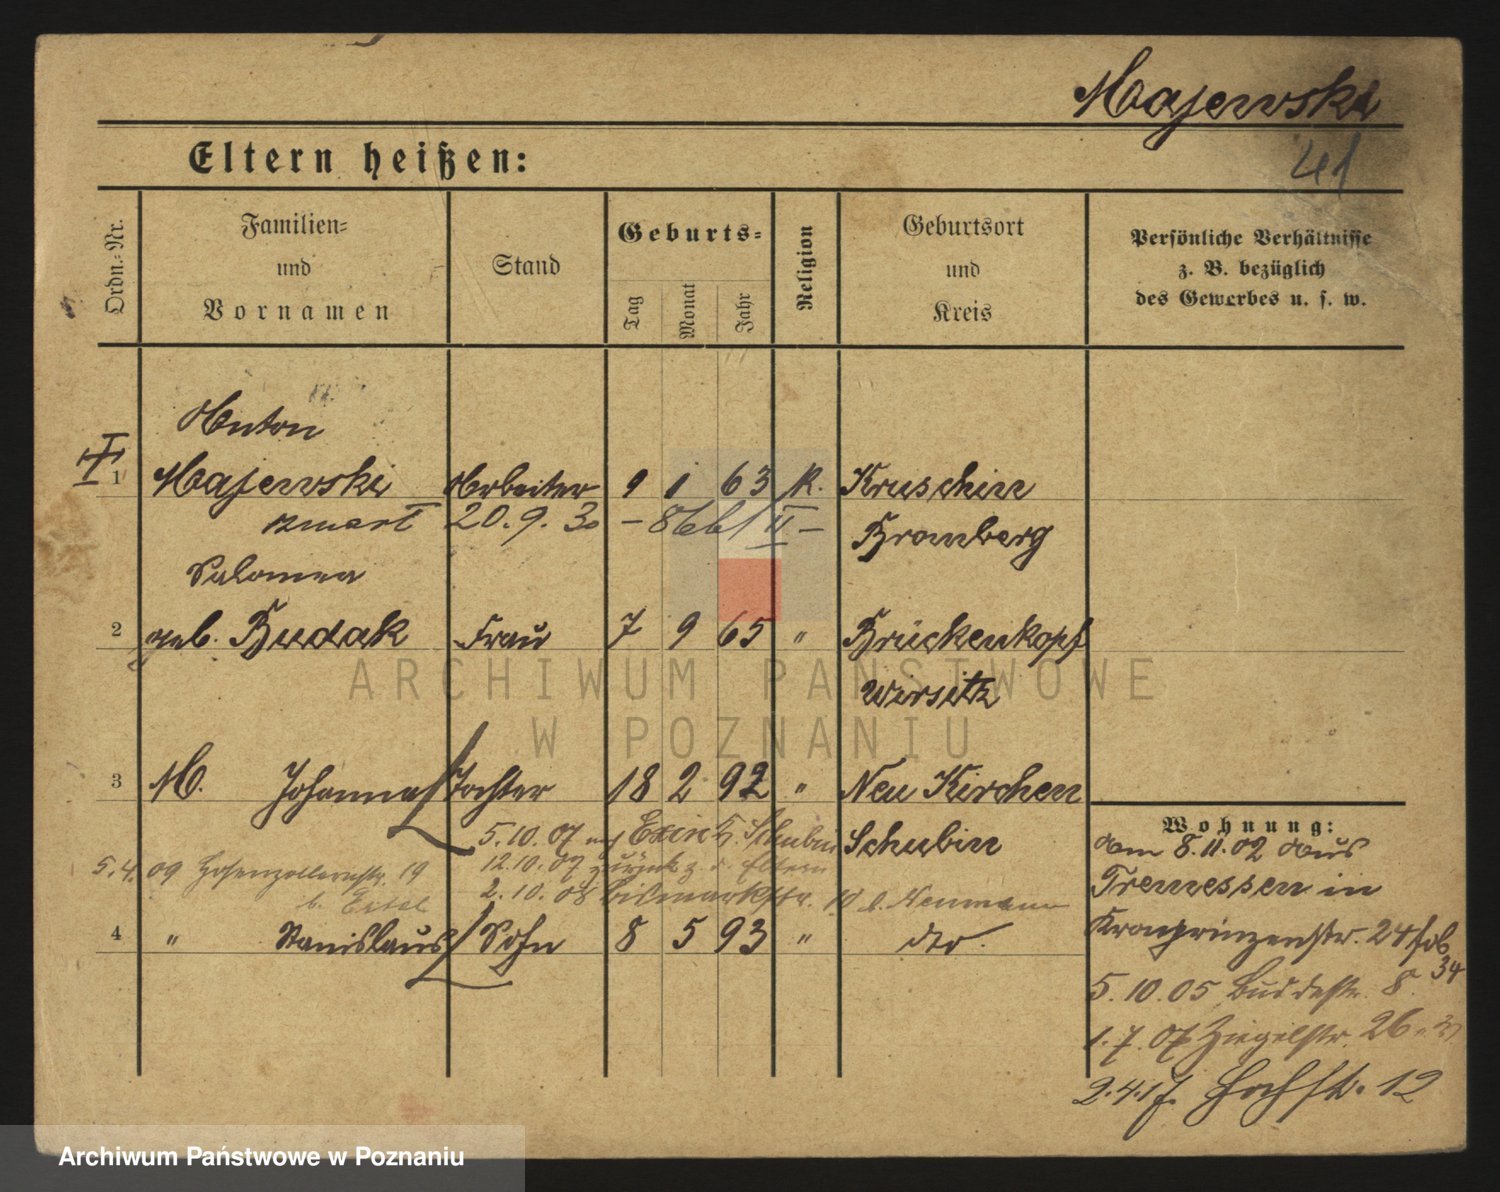 Majewski
41
Eltern heißen:
Ordn.-Nr.
Familien-
und
Vornamen
Stand
Geburts-
Tag
Monat
Jahr
Religion
Geburtsort
und
Kreis
Persönliche Verhältnisse
z. B. bezüglich
des Gewerbes u. s. w.
Anton
1 Majewski Arbeiter 9 1 63 K. Kruschin
zmarł 20.9.30 – 866/II – Bromberg
Salomea
2 geb. Budak Frau 7 9 65 " Brückenkopf
Wirsitz
ARCHIWUM PAŃSTWOWE
W POZNANIU
3 M. Johanna Tochter 18 2 92 " Neu Kirchen
Schubin
5.10.07 Exin Schubin
5.4.09 Hohenzollernstr. 19
12.10.07 zurück z. d. Eltern
2.10.08 Bismarckstr. 10 b. Neumann
4 " Stanislaus Sohn 8 5 93 " dto.
Wohnung:
Am 8.11.02 aus
Tremessen in
Kronprinzenstr. 24
34
5.10.05 Buddestr. 8
1.7.07 Ziegelstr. 26
2.4.17. Hochstr. 12
Archiwum Państwowe w Poznaniu